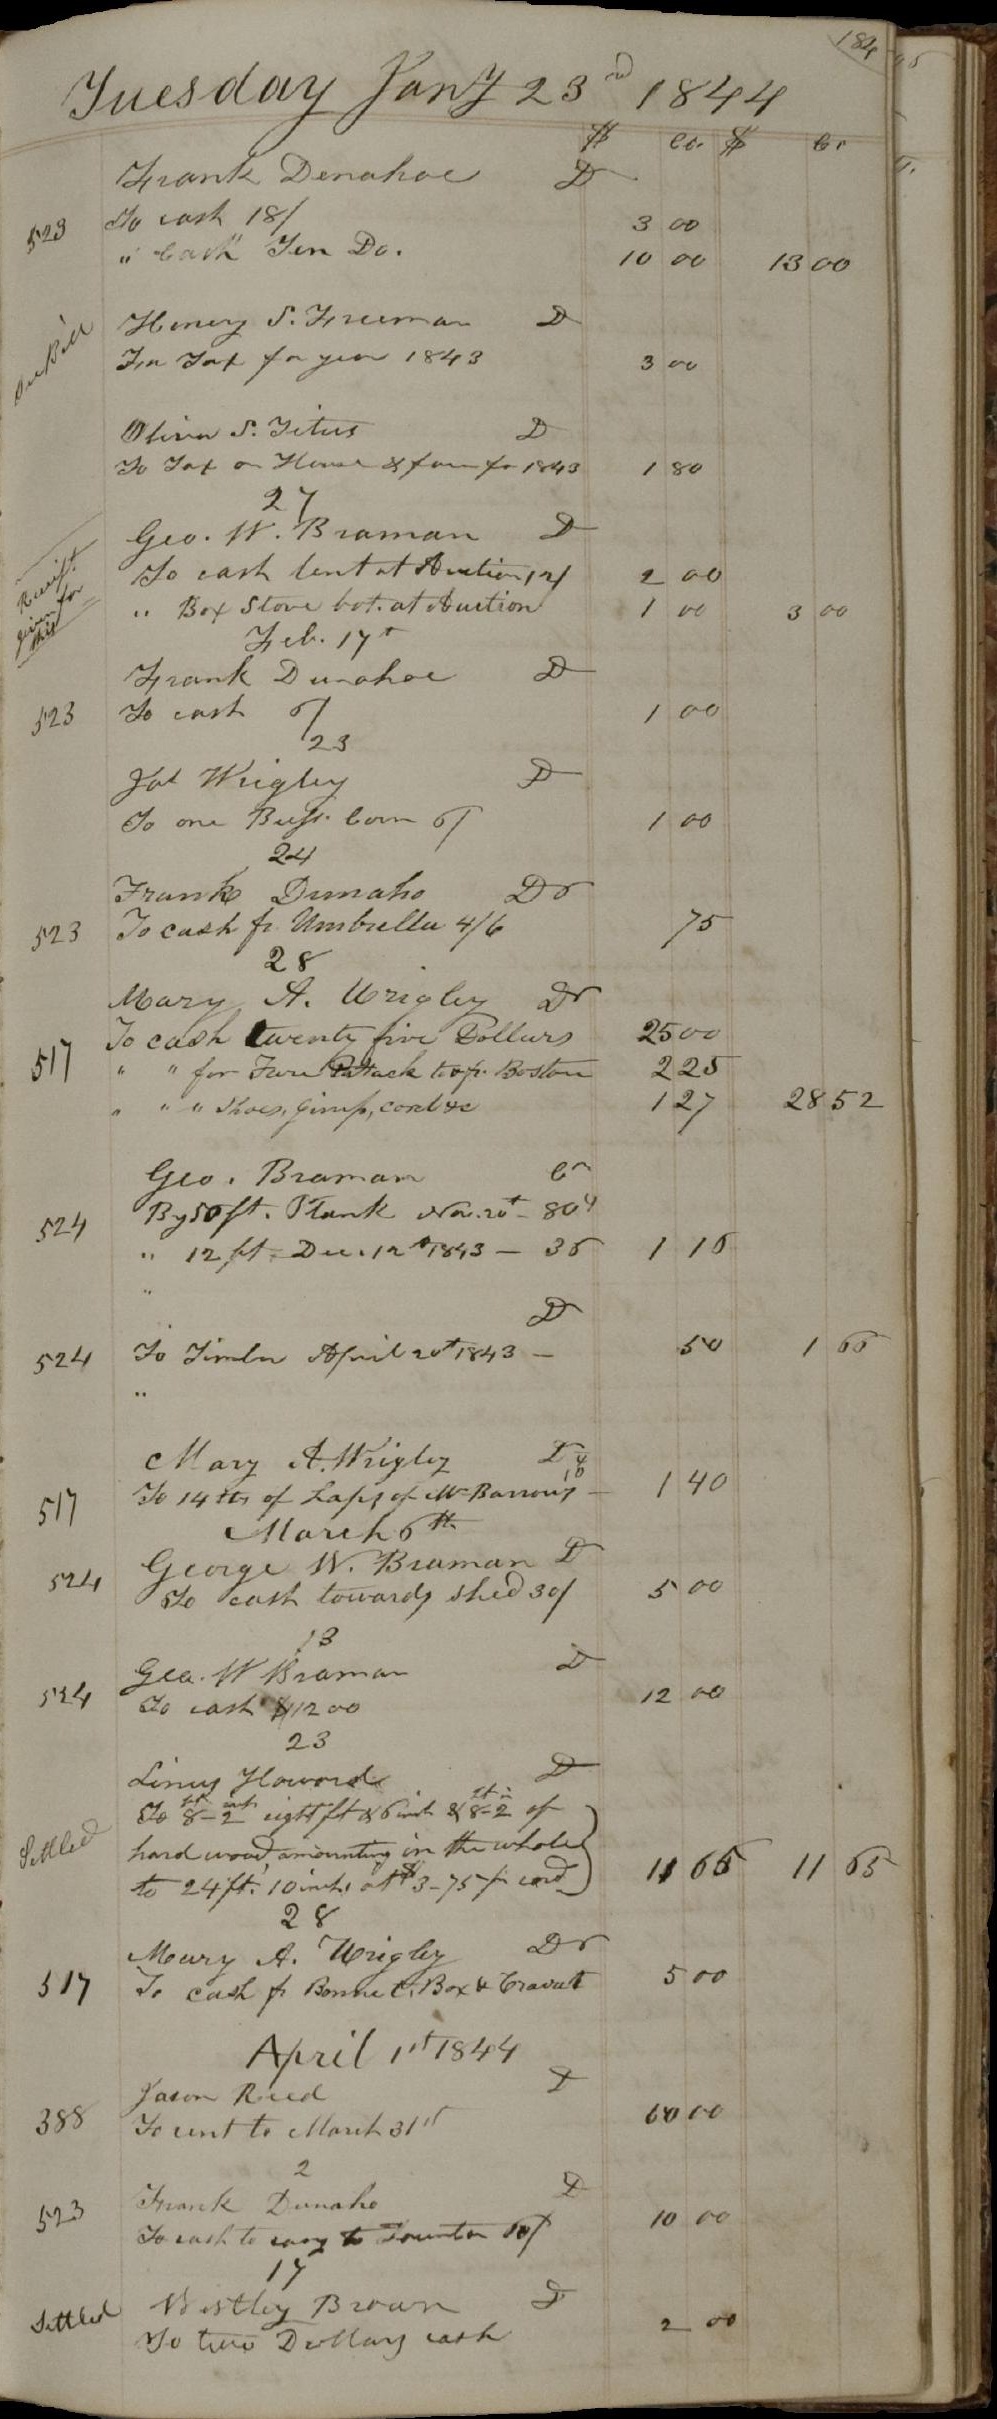 184
Tuesday Jany 23rd 1844
$ Cts $ Cts
Frank Denahoe Dr
523 To cash 18/ 3 00
" Cash Ten Do. 10 00 13 00
Henry S. Freeman Dr
See Bill For Tax for year 1843 3 00
Oliver S. Titus Dr
To Tax on House & farm for 1843 1 80
27
Geo. W. Braman Dr
Receipt given for this To cash lent at Auction 12/ 2 00
" Box Stove bot. at Auction 1 00 3 00
Feb. 17th
Frank Dunahoe Dr
523 To cash 6/ 1 00
23
Jas Wrigley Dr
To one Bush. Corn 6/ 1 00
24
Frank Dunaho Dr
523 To cash fr Umbrella 4/6 75
28
Mary A. Wrigley Dr
To cash twenty five Dollars 25 00
517 " " for Fare to & fr. Boston 2 25
" " " Shoes, Gimp, cord &c 1 27 28 52
Geo. Braman Cr
524 By 50 ft. Plank Nov. 20th - 80
" 12 ft - Dec. 12th 1843 - 36 1 16
"
Dr
524 To Timber April 20th 1843 - 50 1 66
"
Mary A. Wrigley Dr
517 To 14 lbs of of Mr Barrows - 1 40
March 6th
George W. Braman Dr
524 To cash towards shed 30/ 5 00
13
Geo. W Braman Dr
524 To cash $12 00 12 00
23
Linus Howard Dr
To 8-2 eight ft & 6 inch & 8-2 of
Settled hard wood, amounting in the whole
to 24 ft. 10 inch, at $3-75 pr cord 11 65 11 65
28
Mary A. Wrigley Dr
517 To cash fr Bonnet, Box & Cravat 5 00
April 1st 1844
Jason Reed Dr
388 To rent to March 31st 60 00
2
Frank Dunaho Dr
523 To cash to carry to Taunton 60/ 10 00
17
Westley Brown Dr
Settled To two Dollars cash 2 00